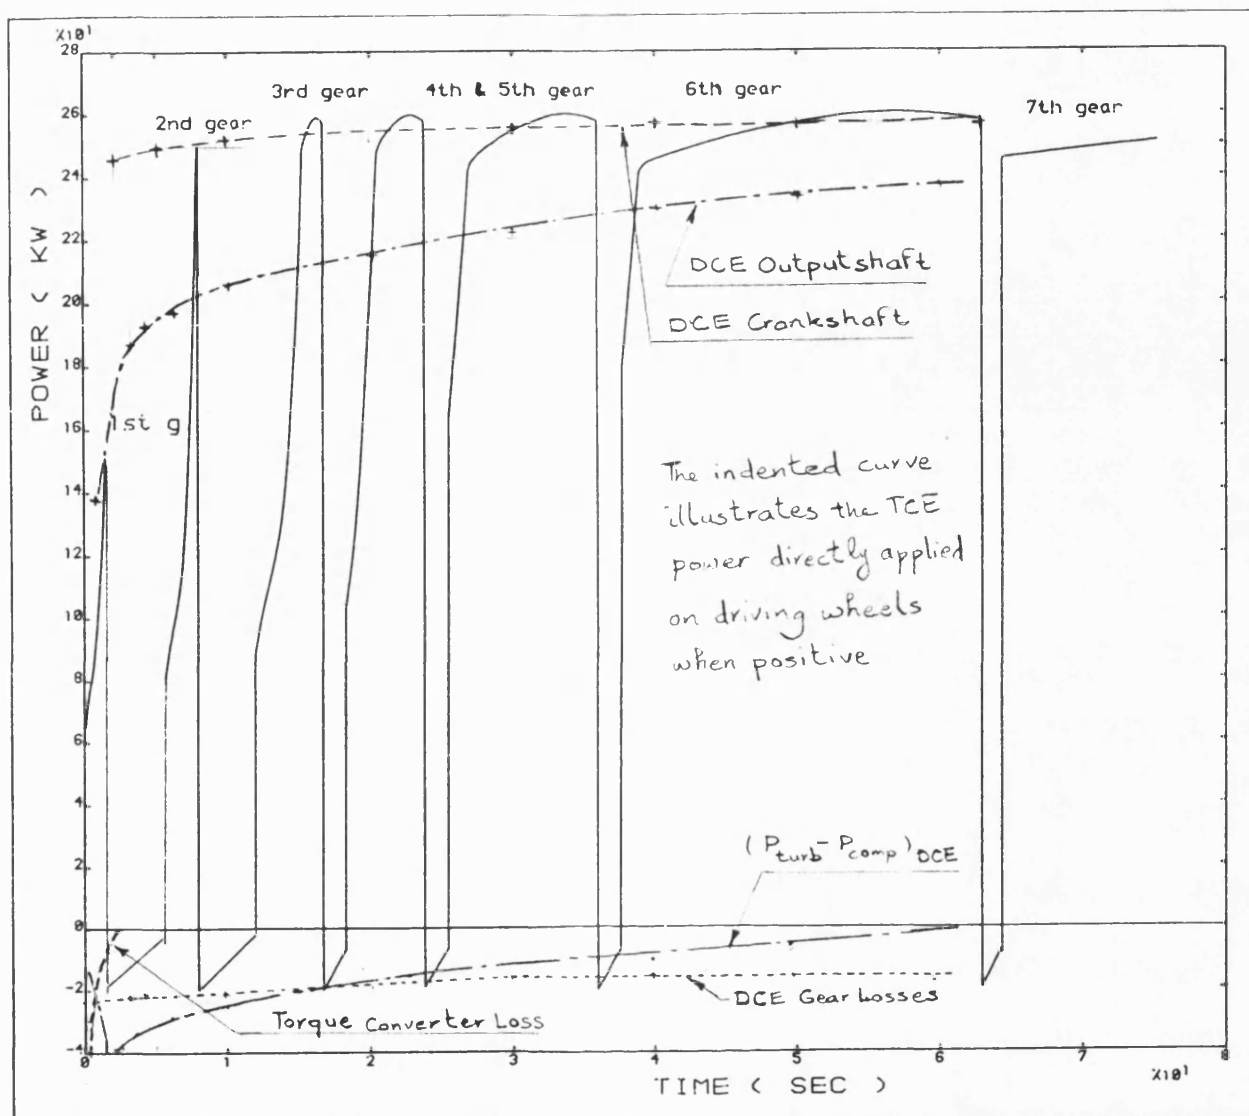 X10¹
28
26
24
22
20
18
16
14
12
10
8
6
4
2
0
-2
-4
POWER ( KW )
1st g
2nd gear
3rd gear
4th & 5th gear
6th gear
7th gear
DCE Outputshaft
DCE Crankshaft
The indented curve
illustrates the TCE
power directly applied
on driving wheels
when positive
(P turb - P comp) DCE
DCE Gear Losses
Torque Converter Loss
0 1 2 3 4 5 6 7 8
X10¹
TIME ( SEC )